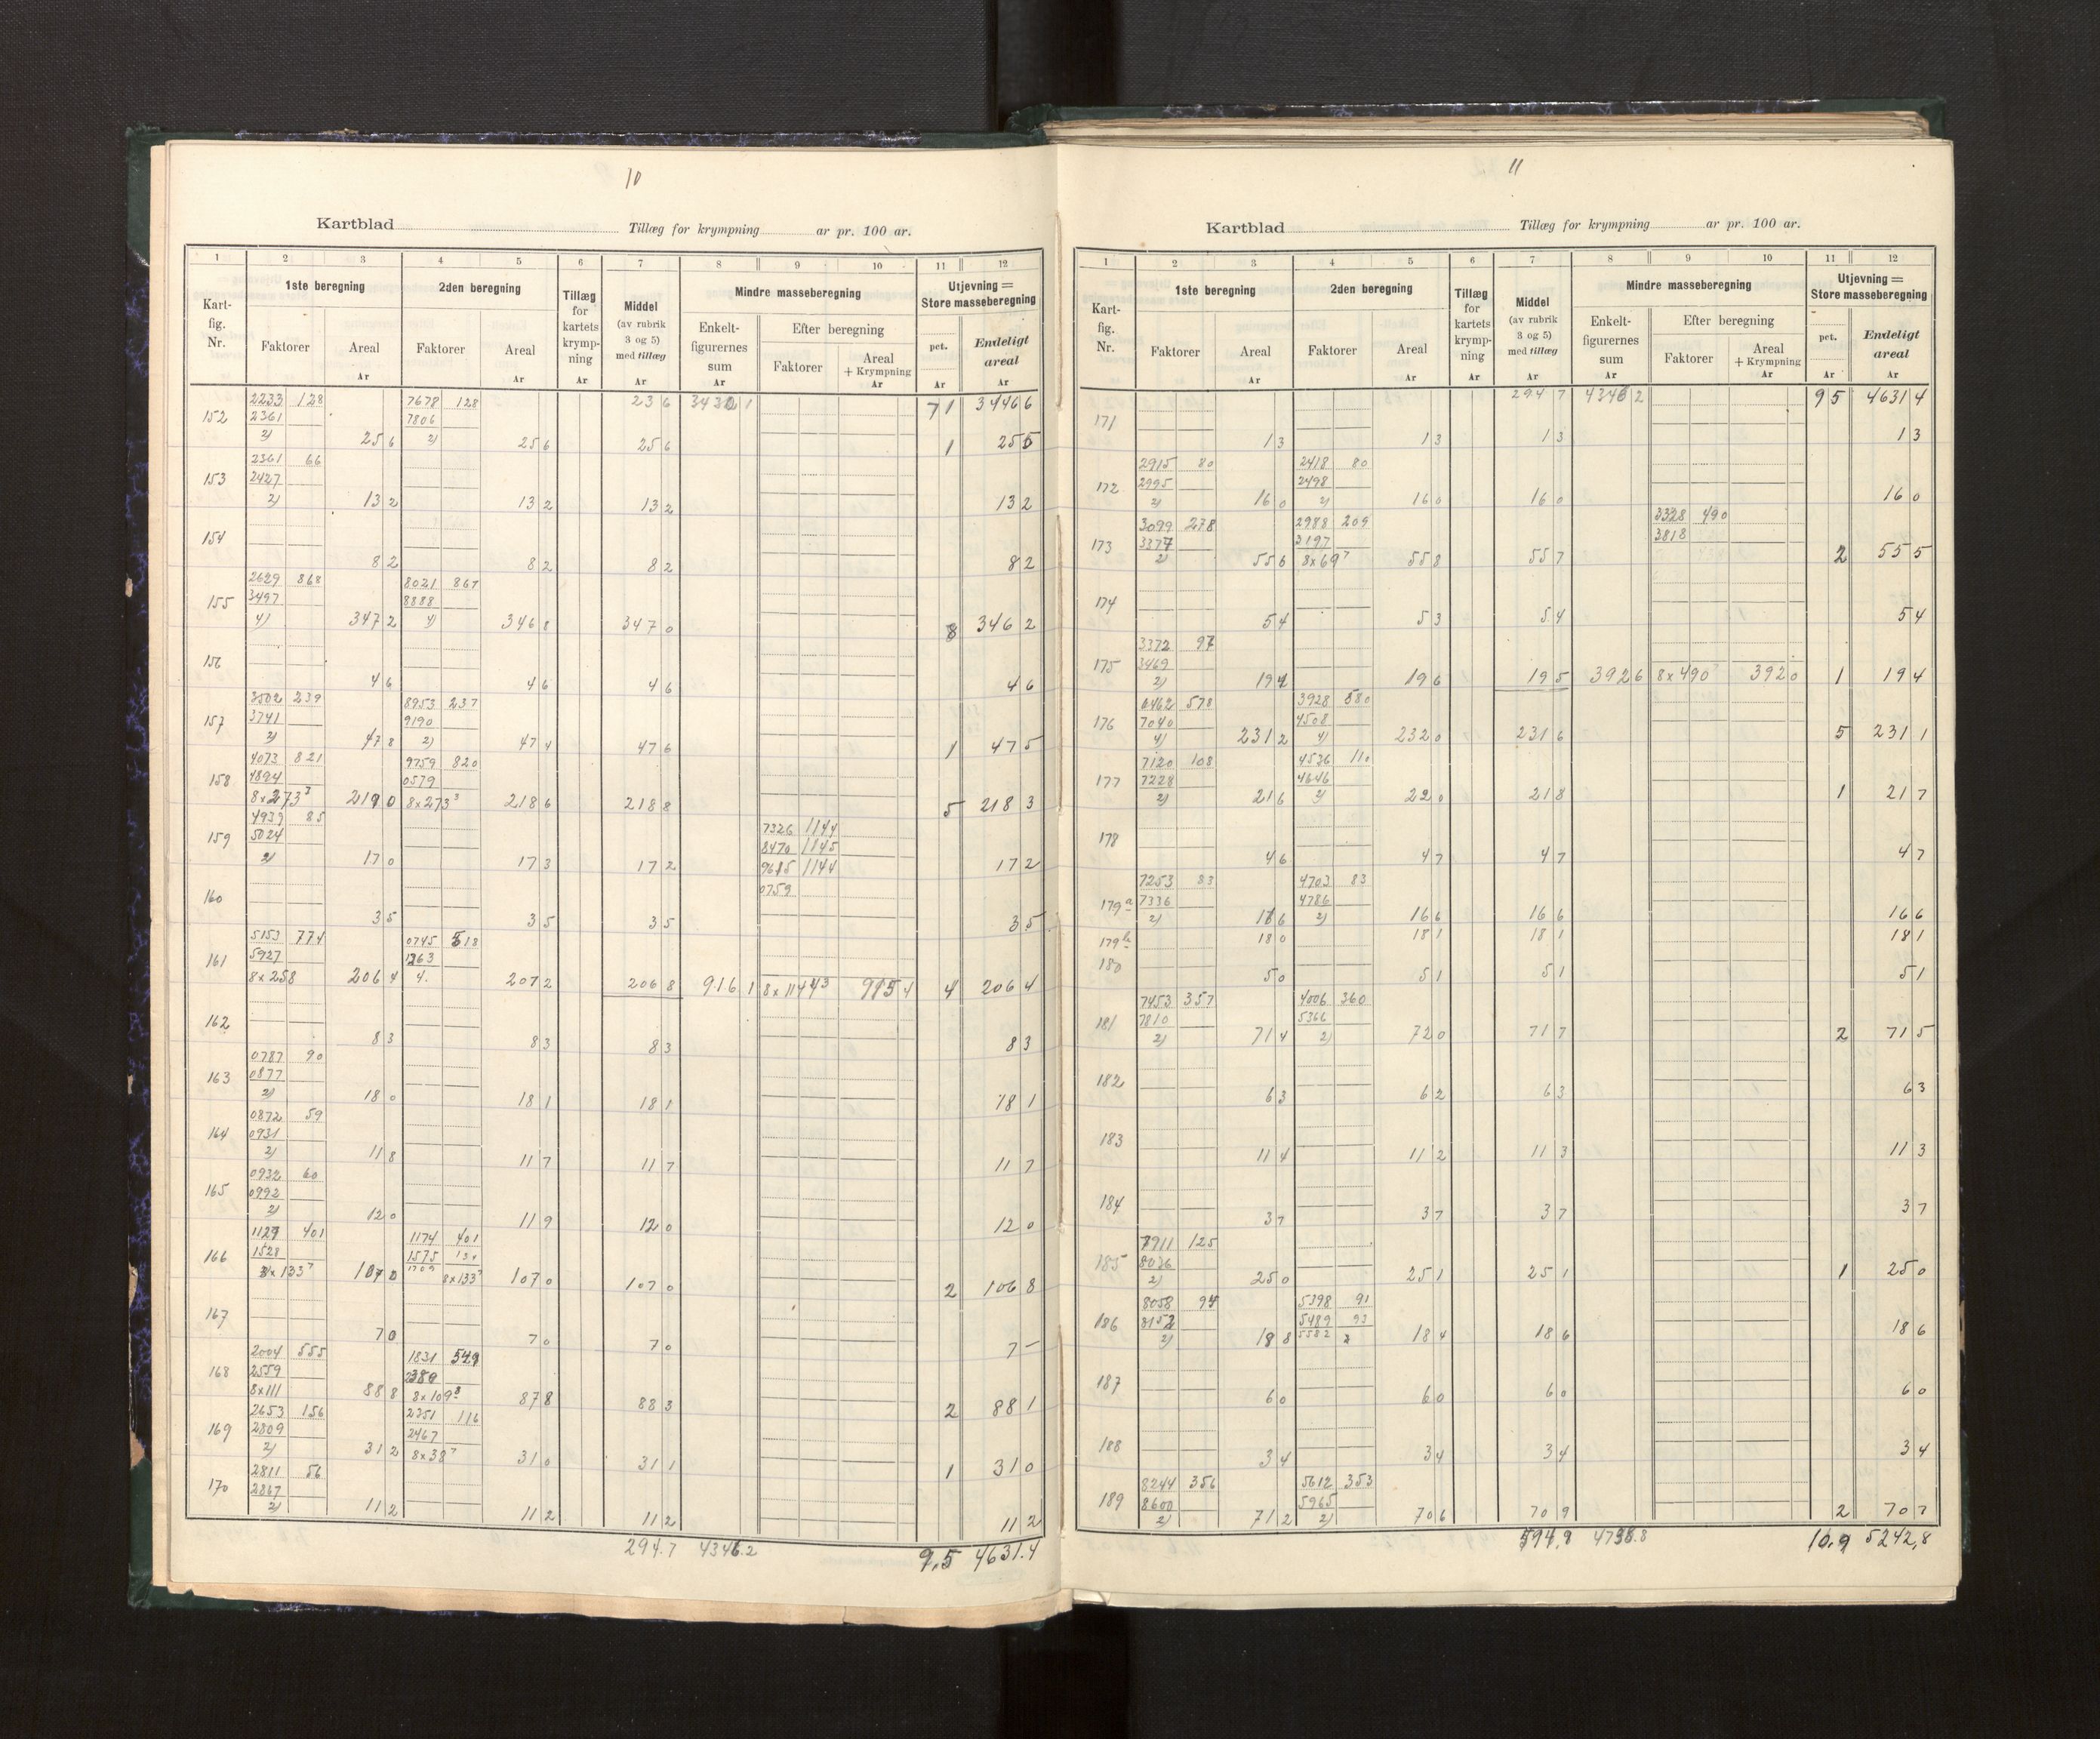 10
Kartblad Tillæg for krympning ar pr. 100 ar.
1 2 3 4 5 6 7 8 9 10 11 12
Kart-fig. Nr. 1ste beregning 2den beregning Tillæg for kartets krymp-ning Middel (av rubrik 3 og 5) med tillæg Mindre masseberegning Utjevning = Store masseberegning
Faktorer Areal Faktorer Areal Enkelt-figurernes sum Efter beregning pct. Endeligt areal
Faktorer Areal + Krympning
Ar Ar Ar Ar Ar Ar Ar Ar
2233 128 7678 128 236 3430 1 7 1 3446 6
152 2361 7806
2) 25 6 2) 25 6 25 6 1 25 5
2361 66
153 2427
2) 13 2 13 2 13 2 13 2
154
8 2 8 2 8 2 8 2
2629 868 8021 867
155 3497 8888
4) 347 2 4) 346 8 347 0 8 346 2
156
4 6 4 6 4 6 4 6
3502 239 8953 237
157 3741 9190
2) 47 8 2) 47 4 47 6 1 47 5
4073 821 9759 820
158 4894 0579
8x273⁷ 219 0 8x273³ 218 6 218 8 5 218 3
4939 85 7326 1144
159 5024 8470 1145
2) 17 0 17 3 17 2 9615 1144 17 2
0759
160
3 5 3 5 3 5 3 5
5153 774 0745 518
161 5927 1263
8x258 206 4 4. 207 2 206 8 916 1 8x1144³ 915 4 4 206 4
162
8 3 8 3 8 3 8 3
0787 90
163 0877
2) 18 0 18 1 18 1 18 1
0872 59
164 0931
2) 11 8 11 7 11 7 11 7
0932 60
165 0992
2) 12 0 11 9 12 0 12 0
1127 401 1174 401
166 1528 1575 134
8x133⁷ 107 0 1709 8x133⁷ 107 0 107 0 2 106 8
167
7 0 7 0 7 0 7 –
2004 555 1831 549
168 2559 2380
8x111 88 8 8x109⁸ 87 8 88 3 2 88 1
2653 156 2351 116
169 2809 2467
2) 31 2 8x38⁷ 31 0 31 1 1 31 0
2811 56
170 2867
2) 11 2 11 2 11 2 11 2
294.7 4346.2 9,5 4631.4
11
Kartblad Tillæg for krympning ar pr. 100 ar.
1 2 3 4 5 6 7 8 9 10 11 12
Kart-fig. Nr. 1ste beregning 2den beregning Tillæg for kartets krymp-ning Middel (av rubrik 3 og 5) med tillæg Mindre masseberegning Utjevning = Store masseberegning
Faktorer Areal Faktorer Areal Enkelt-figurernes sum Efter beregning pct. Endeligt areal
Faktorer Areal + Krympning
Ar Ar Ar Ar Ar Ar Ar Ar
294 7 4346 2 9 5 4631 4
171
1 3 1 3 1 3 1 3
2915 80 2418 80
172 2995 2498
2) 16 0 2) 16 0 16 0 16 0
3099 278 2988 209 3328 490
173 3377 3197 3818
2) 55 6 8x69⁷ 55 8 55 7 2 55 5
174
5 4 5 3 5 4 5 4
3372 97
175 3469
2) 19 4 19 6 19 5 392 6 8x490 392 0 1 19 4
6462 578 3928 580
176 7040 4508
4) 231 2 4) 232 0 231 6 5 231 1
7120 108 4536 110
177 7228 4646
2) 21 6 2) 22 0 21 8 1 21 7
178
4 6 4 7 4 7 4 7
7253 83 4703 83
179a 7336 4786
2) 16 6 2) 16 6 16 6 16 6
179b 18 0 18 1 18 1 18 1
180
5 0 5 1 5 1 5 1
7453 357 4006 360
181 7810 5366
2) 71 4 2) 72 0 71 7 2 71 5
182
6 3 6 2 6 3 6 3
183
11 4 11 2 11 3 11 3
184
3 7 3 7 3 7 3 7
7911 125
185 8036
2) 25 0 25 1 25 1 1 25 0
8058 94 5398 91
186 8152 5489 93
2) 18 8 5582 2 18 4 18 6 18 6
187
6 0 6 0 6 0 6 0
188
3 4 3 4 3 4 3 4
8244 356 5612 353
189 8600 5965
2) 71 2 2) 70 6 70 9 2 70 7
594,9 4738.8 10.9 5242,8